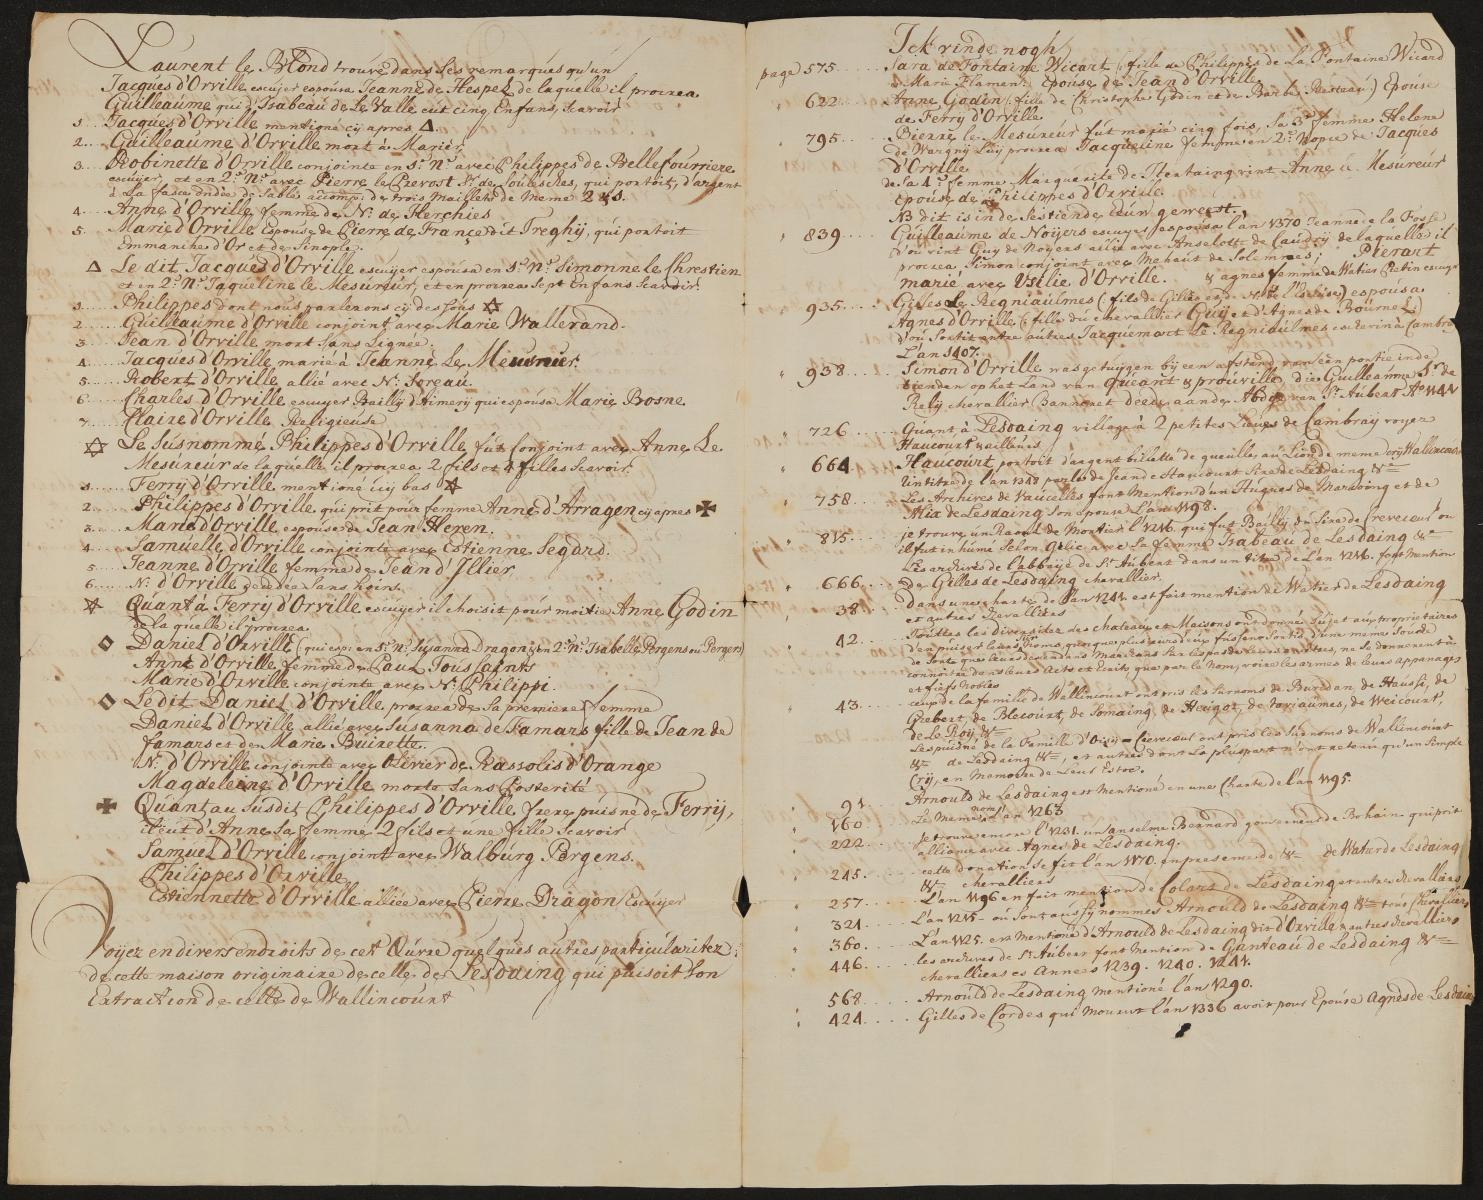 Laurent le Blond trouve dans ses remarques qu'un
Jacques d'Orville escujer espousa Jeanne de Hespel de laquelle il procrea
Guilleaume qui d'Isabeau de Le Valle eut cinq Enfans, Scavoir
1 Jacques d'Orville mentioné cÿ apres △
2 Guilleaume d'Orville mort à Marier
3 Robinotte d'Orville conjointe en 1.es N.es avec Philippes de Bellefourriere
escuÿer, et en 2.es N.es avec Pierre le Prevost Sr. de Soulesches, qui portoit, d'argent
à La fasce ondée de Sable accomp: de trois Maillets de Meme 2 & 1.
4 Anne d'Orville femme de N. de Herchies
5 Marie d'Orville Espouse de Pierre de France dit Treghÿ, qui portoit
Emmanché d'Or et de Sinople.
△ Le dit Jacques d'Orville escuÿer espousa en 1.es N.es Simonne le Chrestien
et en 2.es N.es Jaqueline le Mesureur, et en procrea Sept Enfans Scavoir.
1 Philippes dont nous parlerons cÿ dessous ✡
2 Guilleaume d'Orville conjoint avec Marie Wallerand.
3 Jean d'Orville mort Sans Lignée.
4 Jacques d'Orville marié à Jeanne Le Meusnier.
5 Robert d'Orville allié avec N. Soreau.
6 Charles d'Orville escuÿer Bailly d'Aimerÿ qui espousa Marie Bosne
7 Claire d'Orville Religieuse
✡ Le Susnommé Philippes d'Orville fut Conjoint avec Anne Le
Mesureur de laquelle il procrea 2 fils et 4 filles Scavoir.
1 Ferry d'Orville mentioné icÿ bas ☆
2 Philippes d'Orville qui prit pour femme Anne d'Arragen cÿ apres ✠
3 Marie d'Orville espouse de Jean Heren.
4 Samuelle d'Orville conjointe avec Estienne Segard.
5 Jeanne d'Orville femme de Jean d'Illier
6 N. d'Orville decedée Sans hoirs.
☆ Quant à Ferry d'Orville escuÿer il choisit pour moitié Anne Godin
de laquelle il procrea
◇ Daniel d'Orville (qui esp: en 1.es N.es Susanne Dragon, & en 2.es N.es Isabelle Pergens ou Pergens)
Anne d'Orville femme de Paul Toussaints
Marie d'Orville conjointe avec N. Philippi.
◇ Le dit Daniel d'Orville procrea de Sa premiere femme
Daniel d'Orville allié avec Susanna de Famars fille de Jean de
famars et de Marie Buizette.
N. d'Orville conjointe avec Olivier de Rassolis d'Orange
Magdeleine d'Orville morte Sans Posterité
✠ Quant au Susdit Philippes d'Orville frere puisné de Ferrij,
il eut d'Anne Sa femme 2 fils et une fille Scavoir
Samuel d'Orville conjoint avec Walburg Pergens.
Philippes d'Orville
Estiennette d'Orville alliée avec Pierre Dragon Escuÿer
Voyez en divers endroits de cet Œuvre quelques autres particularitez
de cette maison originaire de celle de Lesdaing qui puisoit Son
Extraction de celle de Wallincourt
Ick vinde nogh
page 575 Sara de Fontaine Wicart (fille de Philippes de La Fontaine Wicard
& Marie Flameng) Epouse de Jean d'Orville
622 Anne Godin (fille de Christophe Godin et de Barbe Resteau) Epouse
de Ferry d'Orville
795 Pierre le Mesureur fut marié cinq fois, Sa 3e femme Helene
de Wargny Luÿ procrea Jacqueline femme en 2.es Nopces de Jacques
d'Orville
de Sa 4e femme Marguerite de Stertaing vint Anne le Mesureur
Epouse de Philippes d'Orville.
NB dit is in de Sestiende Eeuw geweest.
839 Guilleaume de Noÿers escuÿer espousa l'an 1370 Jeanne de la Fosse
d'ou vint Guy de Noyers allié avec Anselotte de Caudrÿ de laquelle il
procrea Simon conjoint avec Mehaut de Solemmes; Pierart
marié avec Usilie d'Orville. & agnes femme de Watier Crebin escuÿer
935 Gilles Le Regniaulmes (fils de Gilles et de N. de l'Eschise) espousa
Agnes d'Orville (fille du chevallier Guÿ et d'Agnes de Bournel)
d'ou Sortit entre autres Jacquemart Le Regniaulmes eschevin à Cambraÿ
L'an 1407.
938 Simon d'Orville was getuygen bij een afstand van een portie inde
tienden op het Land van Queant & prouville, die Guilleaume Sr. de
Relÿ chevallier Banneret deede aande Abdije van St. Aubert Ao. 1242
726 Quant à Lesdaing village à 2 petites Lieues de Cambraÿ voyez
Haucourt & ailleurs
664 Haucourt portoit d'argent billetté de gueulles, au Lion de meme crÿ Wallincourt
Un titre de l'an 1340 parle de Jean de Haucourt Sire de Lesdaing &c
758 Les Archives de Vaucelles font Mention d'un Hugues de Marcoing et de
Mia de Lesdaing Son Epouse L'an 1198.
815 je trouve un Raoul de Mortier l'1216. qui fut Bailly du Sire de Crevecœur ou
il fut inhumé Selon Gelic avec Sa femme Isabeau de Lesdaing &c
666 Les archives de l'abbaÿe de St. Aubert dans un titre de L'an 1246. font Mention
de Gilles de Lesdaing chevallier.
38 Dans une charte de l'an 1241 est fait mention de Watier de Lesdaing
et autres Chevalliers
42 Touttes les diversitez des chateaux et Maisons ont donné Sujet aux proprietaires
d'en puiser leurs Noms, quoique plusieurs d'eux fussent Sortis d'une meme Souche
de Sorte que leurs descendans Marchans Sur les pas de leurs ancetres, ne Se donnerent à
connoitre dans leurs Actes et Ecrits, que par le Nom, voire les armes de leurs appanages
et fiefs Nobles
43 ceux de la famille de Wallincourt ont pris les Surnoms de Buridan, de Haussÿ, de
Grebert, de Blecourt, de Somaing, de Heugot, de Marjaumes, de Weicourt,
de Le Roÿ, &c
Les puisné de la Famille d'Oisÿ - Crevecœur ont pris les Surnoms de Wallincourt
&c de Lesdaing &c, et autres dont La pluspart n'ont retenu qu'un Simple
Crÿ, en Memoire de Leur Estoc.
91 Arnould de Lesdaing est Mentioné en une Charte de l'an 1195.
160 Le Meme nomé l'an 1263
222 Je trouve encore l'1231. un Anselme Bernard gouverneur de Bohain qui prit
alliance avec Agnes de Lesdaing.
245 cette donation Se fit l'an 1170. en presence de &c de Watier de Lesdaing
&c chevalliers
257 L'an 1196 en fait mention de Colart de Lesdaing et autres chevalliers
321 L'an 1215 ou Sont aussÿ nommes Arnould de Lesdaing &c tous Chevalliers
360 L'an 1225. est Mentioné d'Arnould de Lesdaing dit d'Orville & autres chevalliers
446 les archives de St. Aubert font Mention de Ganteau de Lesdaing &c
chevalliers es Annees 1239. 1240. 1241.
568 Arnould de Lesdaing mentioné l'an 1290.
424 Gilles de Cordes qui Mourut l'an 1336 avoit pour Epouse Agnes de Lesdain